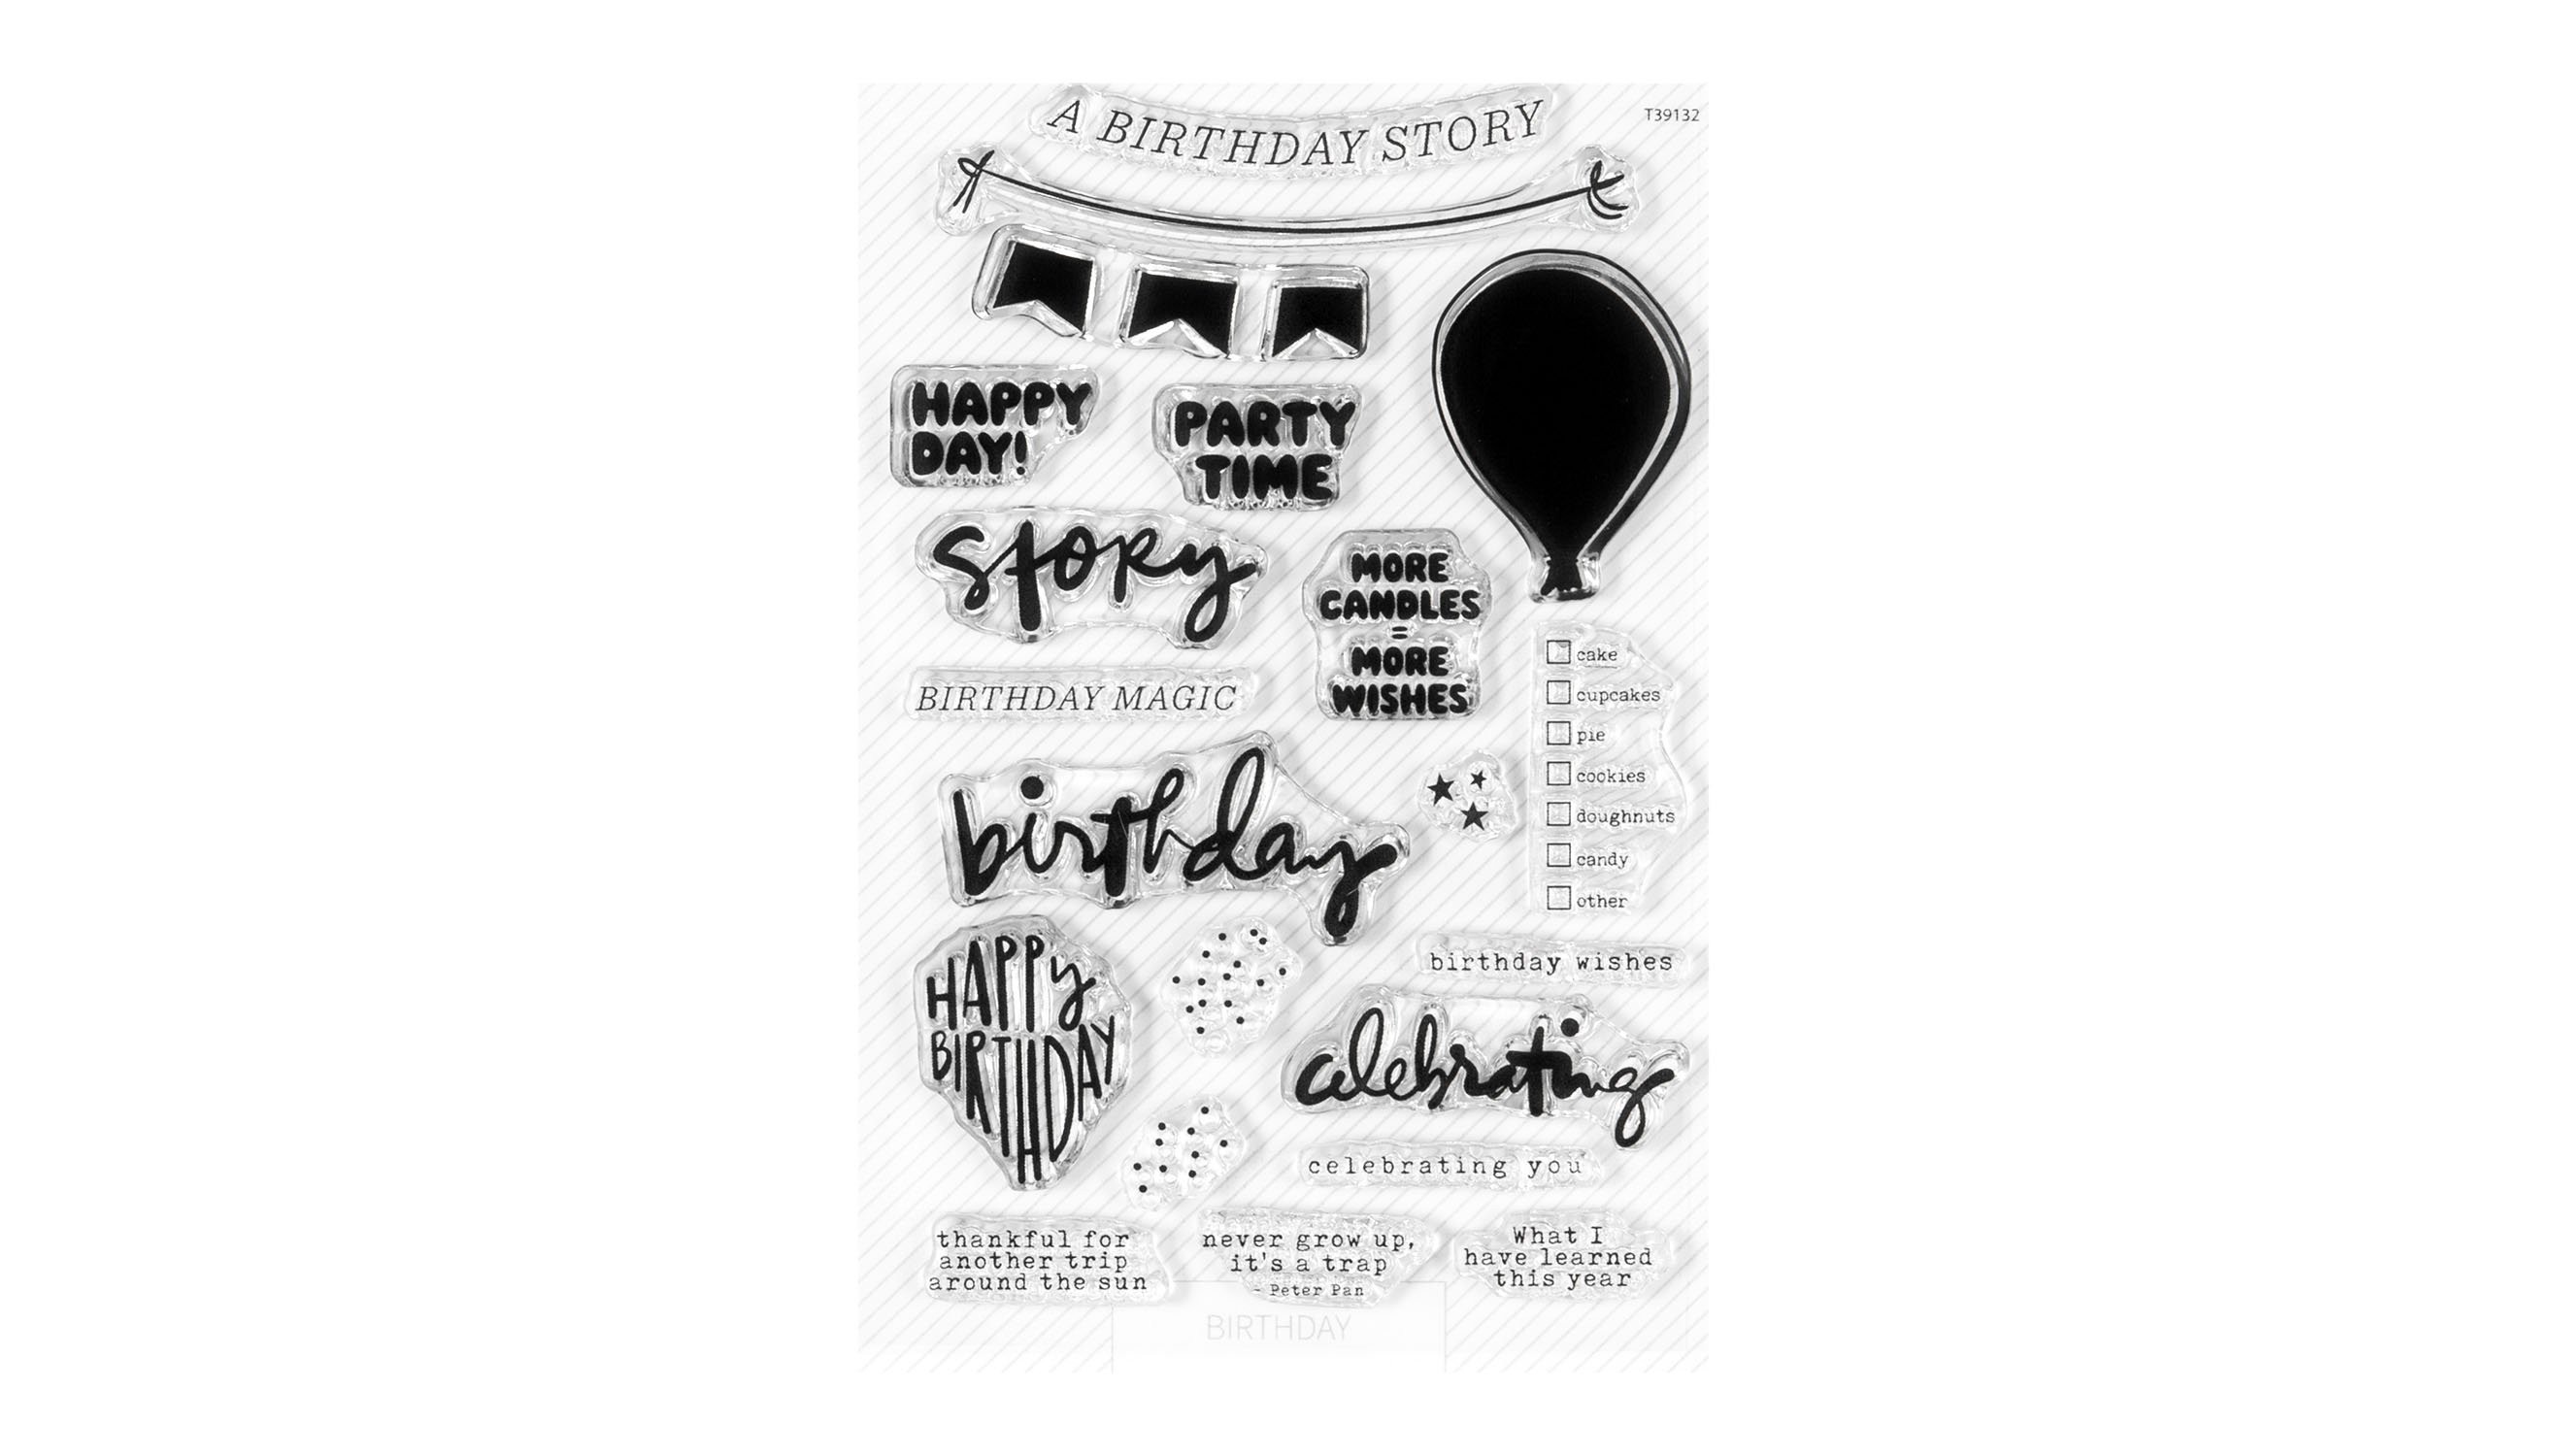 A BIRTHDAY STORY
T39132
HAPPY
DAY!
PARTY
TIME
story
MORE
CANDLES
=
MORE
WISHES
cake
cupcakes
pie
cookies
doughnuts
candy
other
BIRTHDAY MAGIC
birthday
HAPPY
BIRTHDAY
birthday wishes
celebrating
celebrating you
thankful for
another trip
around the sun
never grow up,
it's a trap
- Peter Pan
What I
have learned
this year
BIRTHDAY